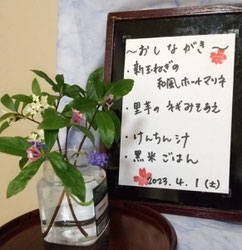 ～おしながき
・新玉ねぎの
和風ホットマリネ
・里芋のネギみそあえ
・けんちん汁
・黒米ごはん
2023.4.1(土)